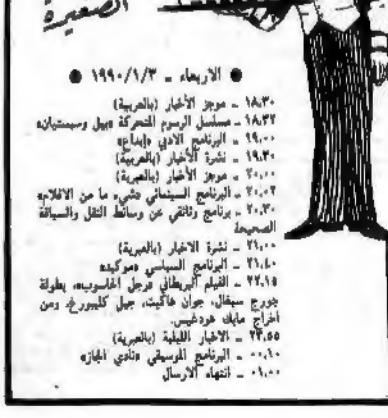 الصغيرة
● الاربعاء ـ ١٩٩٠/١/٣ ●
١٨،٣٠ ـ موجز الأخبار (بالعربية)
١٨،٣٢ ـ مسلسل الرسوم المتحركة «بيل وسبستيان»
١٩،٠٠ ـ البرنامج الادبي «إبداع»
١٩،٣٠ ـ نشرة الأخبار (بالعربية)
٢٠،٠٠ ـ موجز الأخبار (بالعبرية)
٢٠،٠٢ ـ البرنامج السينمائي «شيء ما عن الافلام»
٢٠،٣٠ ـ برنامج وثائقي عن وسائط النقل والسياقة
الصحيحة
٢١،٠٠ ـ نشرة الاخبار (بالعبرية)
٢١،٤٠ ـ البرنامج السياسي «موكيد»
٢٢،١٥ ـ الفيلم البريطاني «رجل الحاسوب»، بطولة
جورج سيغال، جوان هاكيت، جيل كليبورغ، ومن
اخراج مايك هودغيس.
٢٣،٥٥ ـ الاخبار الليلية (بالعبرية)
٠٠،١٠ ـ البرنامج الموسيقي «نادي الجاز»
٠١،٠٠ ـ انتهاء الارسال